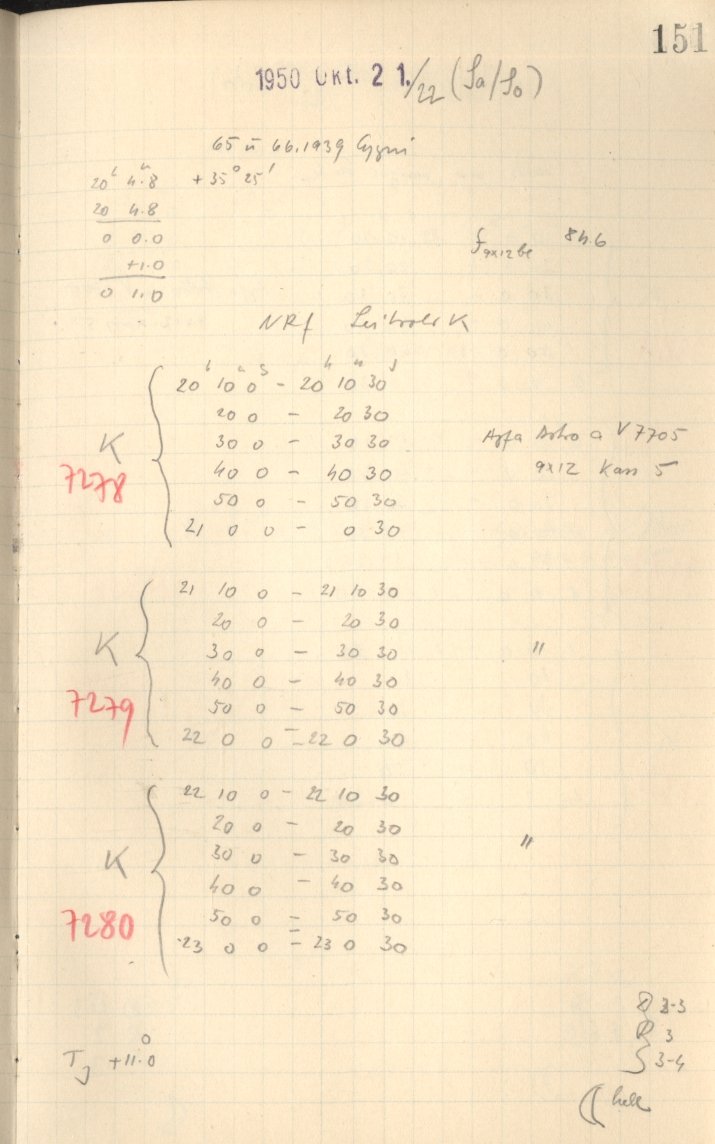 151
1950 Okt. 21./22 (Sa/So)
65 u 66.1939 Cygni
20h 4m.8 +35° 25'
20 4.8
0 0.0
+1.0
0 1.0
f9x12be 84.6
NRf K
20h 10m 0s - 20h 10m 30s
20 0 - 20 30
30 0 - 30 30
40 0 - 40 30
50 0 - 50 30
21 0 0 - 0 30
K
7278
Agfa Astro a V 7705
9x12 Kass 5
21 10 0 - 21 10 30
20 0 - 20 30
30 0 - 30 30
40 0 - 40 30
50 0 - 50 30
22 0 0 - 22 0 30
K
7279
"
22 10 0 - 22 10 30
20 0 - 20 30
30 0 - 30 30
40 0 - 40 30
50 0 - 50 30
23 0 0 - 23 0 30
K
7280
"
TJ +11°.0
3-3
R 3
S 3-4
(( hell